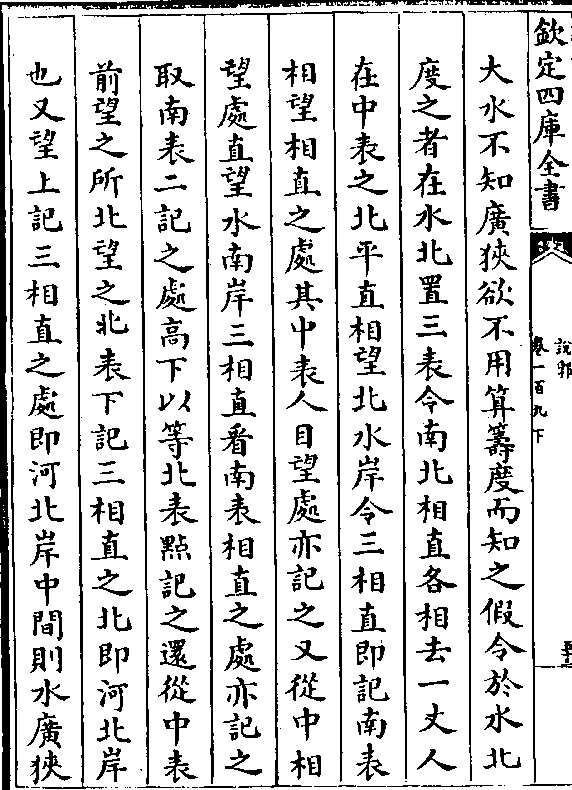 欽定四庫全書
說郛
卷一百九下
大水不知廣狹欲不用算籌度而知之假令於水北
度之者在水北置三表令南北相直各相去一丈人
在中表之北平直相望北水岸令三相直即記南表
相望相直之處其中表人目望處亦記之又從中相
望處直望水南岸三相直看南表相直之處亦記之
取南表二記之處高下以等北表㸃記之還從中表
前望之所北望之北表下記三相直之北即河北岸
也又望上記三相直之處即河北岸中間則水廣狹